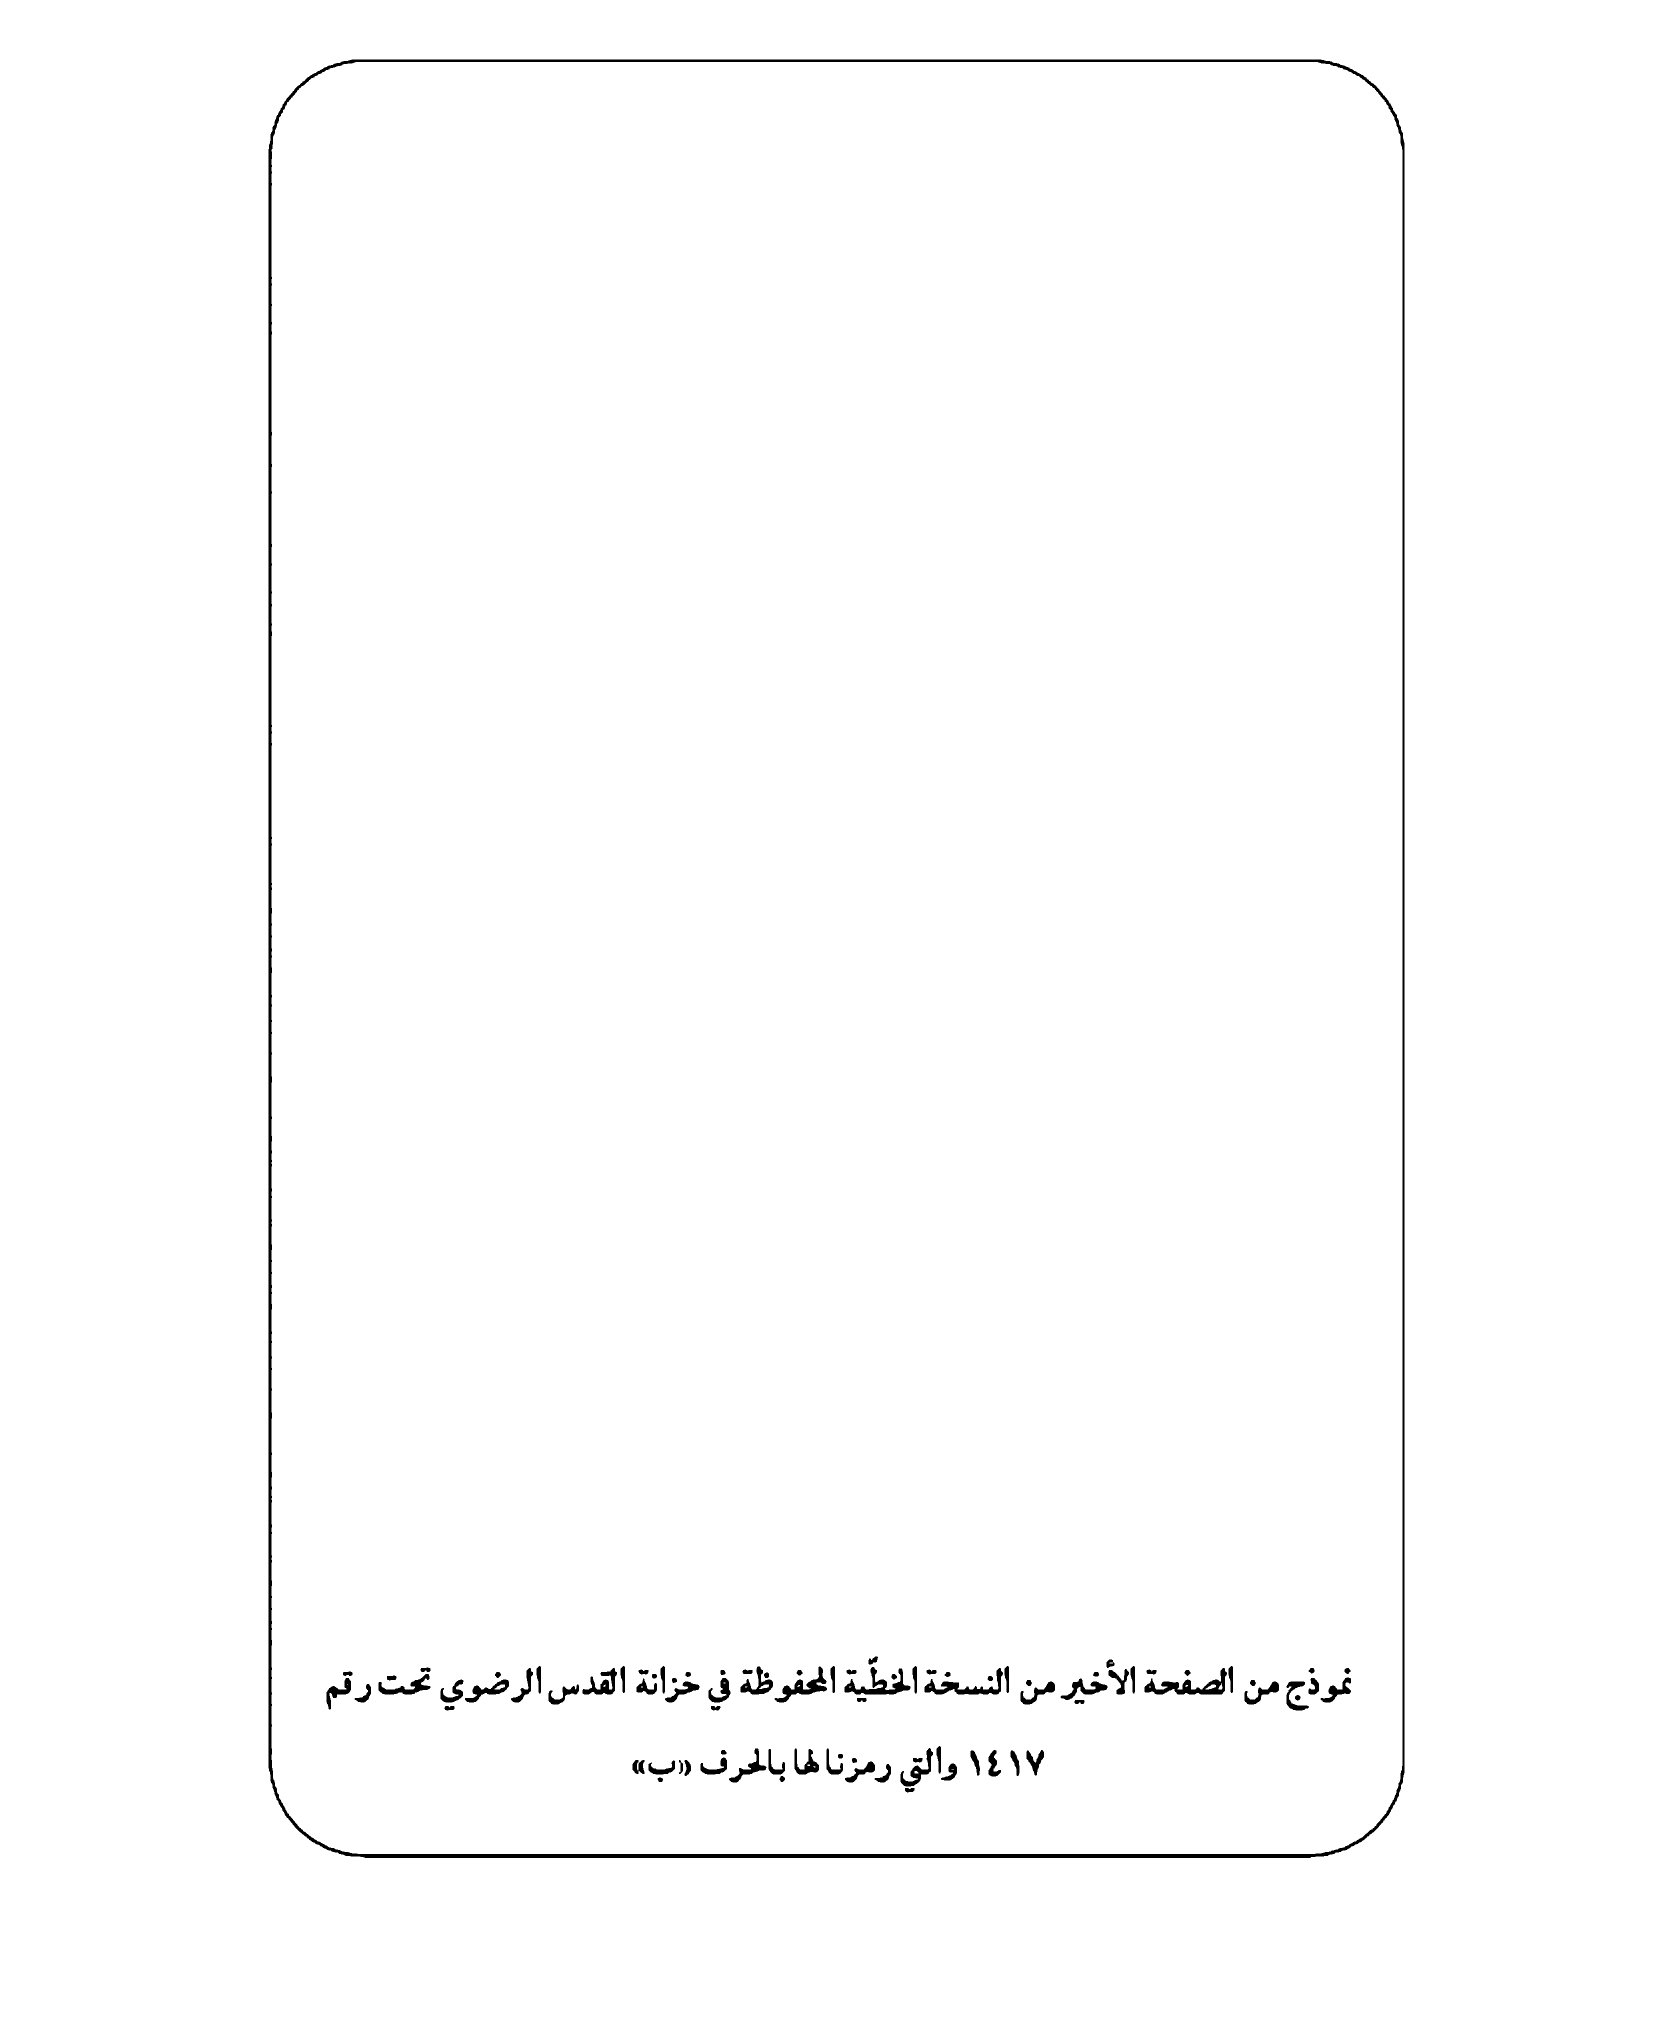 نموذج من الصفحة الأخير من النسخة الخطّية المحفوظة في خزانة القدس الرضوي تحت رقم
١٤١٧ والتي رمزنا لها بالحرف «ب»